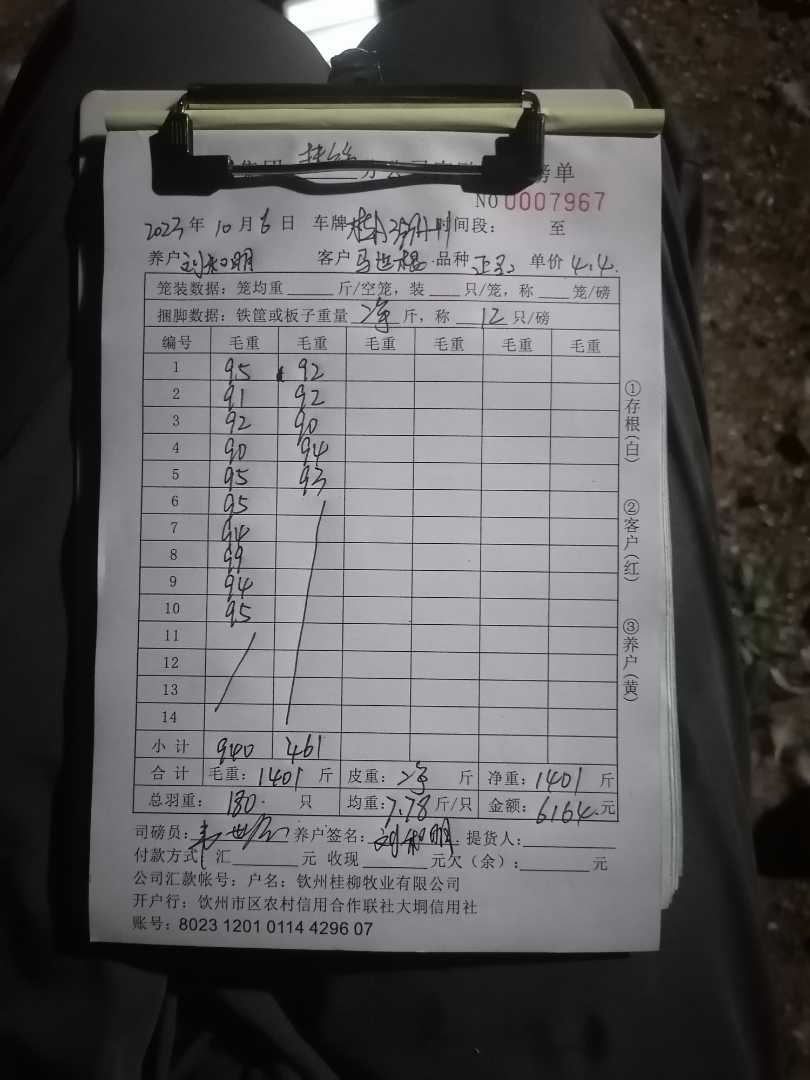 集团 分公司 磅单
NO 0007967
2023年10月6日 车牌 时间段： 至
养户刘和明 客户马世 品种正 单价4.4.
笼装数据：笼均重 斤/空笼，装 只/笼，称 笼/磅
捆脚数据：铁筐或板子重量 净 斤，称 12 只/磅
编号 毛重 毛重 毛重 毛重 毛重 毛重
1 95 92
2 91 92
3 92 90
4 90 94
5 95 93
6 95
7 94
8 99
9 94
10 95
11
12
13
14
小计 940 461
合计 毛重：1401斤 皮重：净 斤 净重：1401斤
总羽重：180. 只 均重：7.78斤/只 金额：6164.元
司磅员： 养户签名：刘和明 提货人：
付款方式（汇 元 收现 元欠（余）： 元
公司汇款帐号：户名：钦州桂柳牧业有限公司
开户行：钦州市区农村信用合作联社大垌信用社
账号：8023 1201 0114 4296 07
①存根(白)
②客户(红)
③养户(黄)